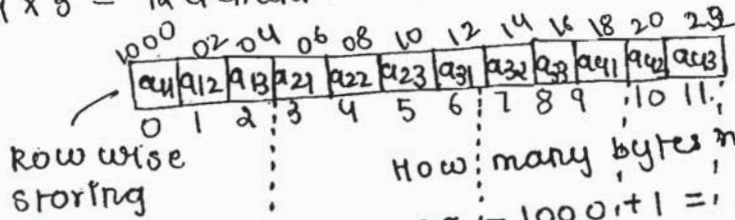 4 x 3 =
1000 02 04 06 08 10 12 14 16 18 20 22
a11 a12 a13 a21 a22 a23 a31 a32 a33 a41 a42 a43
0 1 2 3 4 5 6 7 8 9 10 11
Row wise
storing
How many bytes
- 1000 + 1 =